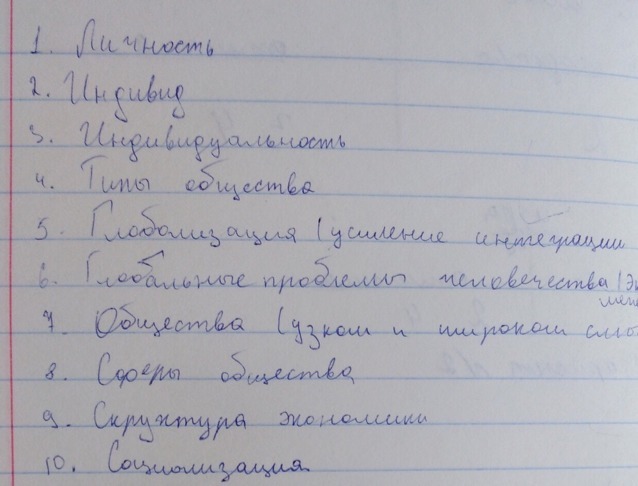 1. Личность
2. Индивид
3. Индивидуальность
4. Типы общества
5. Глобализация (усиление интеграции
6. Глобальные проблемы человечества (
7. Общества (узком и широком
8. Сферы общества
9. Скруктура экономики
10. Социализация